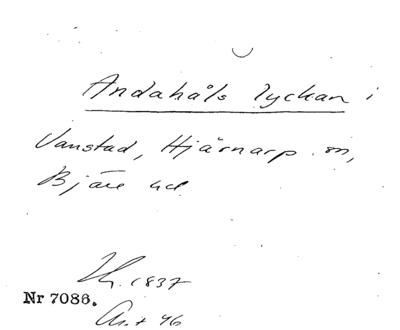 Andahåls lyckan i
Vanstad, Hjärnarp sn,
Bjäre hd
1837
Nr 7086.